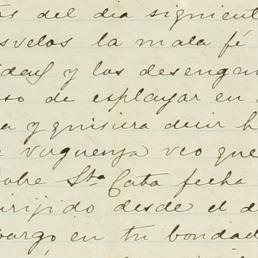 as del dia siguient
svelos la mala fé
idas y los desengañ
so de esplayar en
a y quisiera decir h
e verguenza veo que
obre Sta Cata fecha
irijido desde el d
bargo en tu bondad